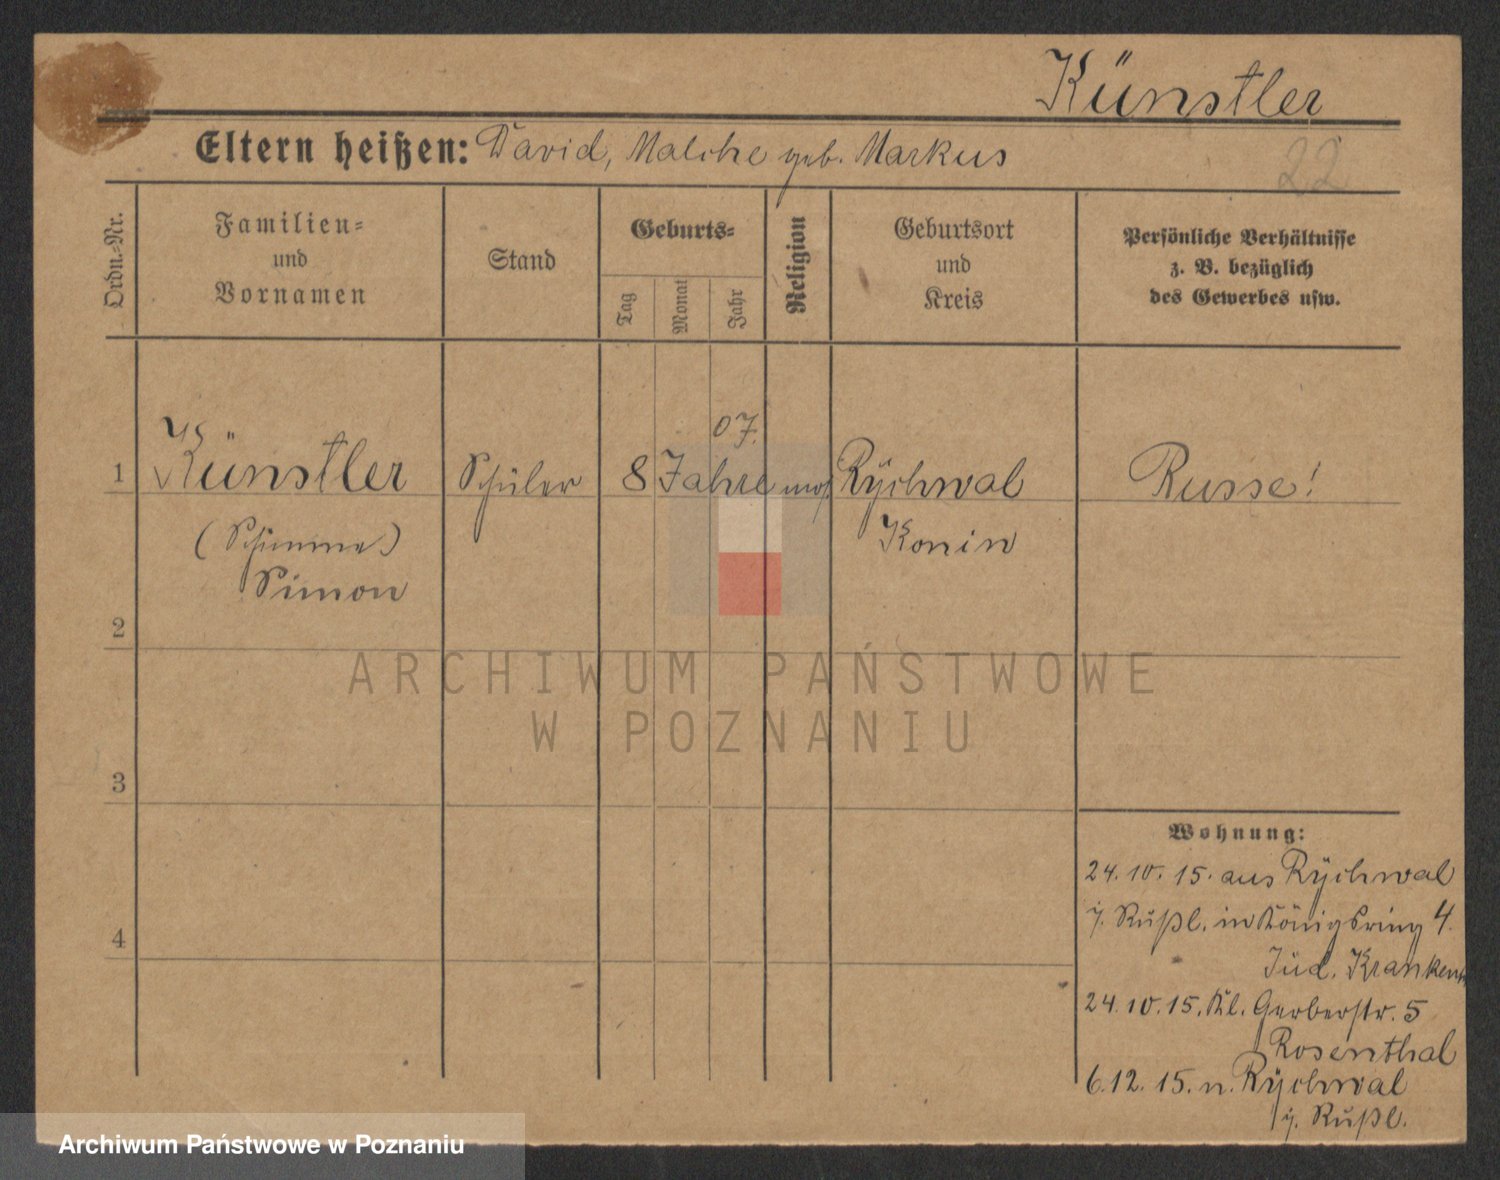 Künstler
Eltern heißen: David, Malche geb. Markus
22
Ordn.-Nr.
Familien-
und
Vornamen
Stand
Geburts-
Tag
Monat
Jahr
Religion
Geburtsort
und
Kreis
Persönliche Verhältnisse
z. B. bezüglich
des Gewerbes usw.
07.
1 Künstler Schüler 8 Jahre mos Rÿchwal Russe!
(Schimme) Konin
Simon
2
ARCHIWUM PAŃSTWOWE
W POZNANIU
3
4
Wohnung:
24.10.15. aus Rÿchwal
i. Rußl. in Königsring 4.
Jüd. Krankenh
24.10.15. Kl. Gerberstr. 5
Rosenthal
6.12.15. n. Rÿchwal
i. Rußl.
Archiwum Państwowe w Poznaniu